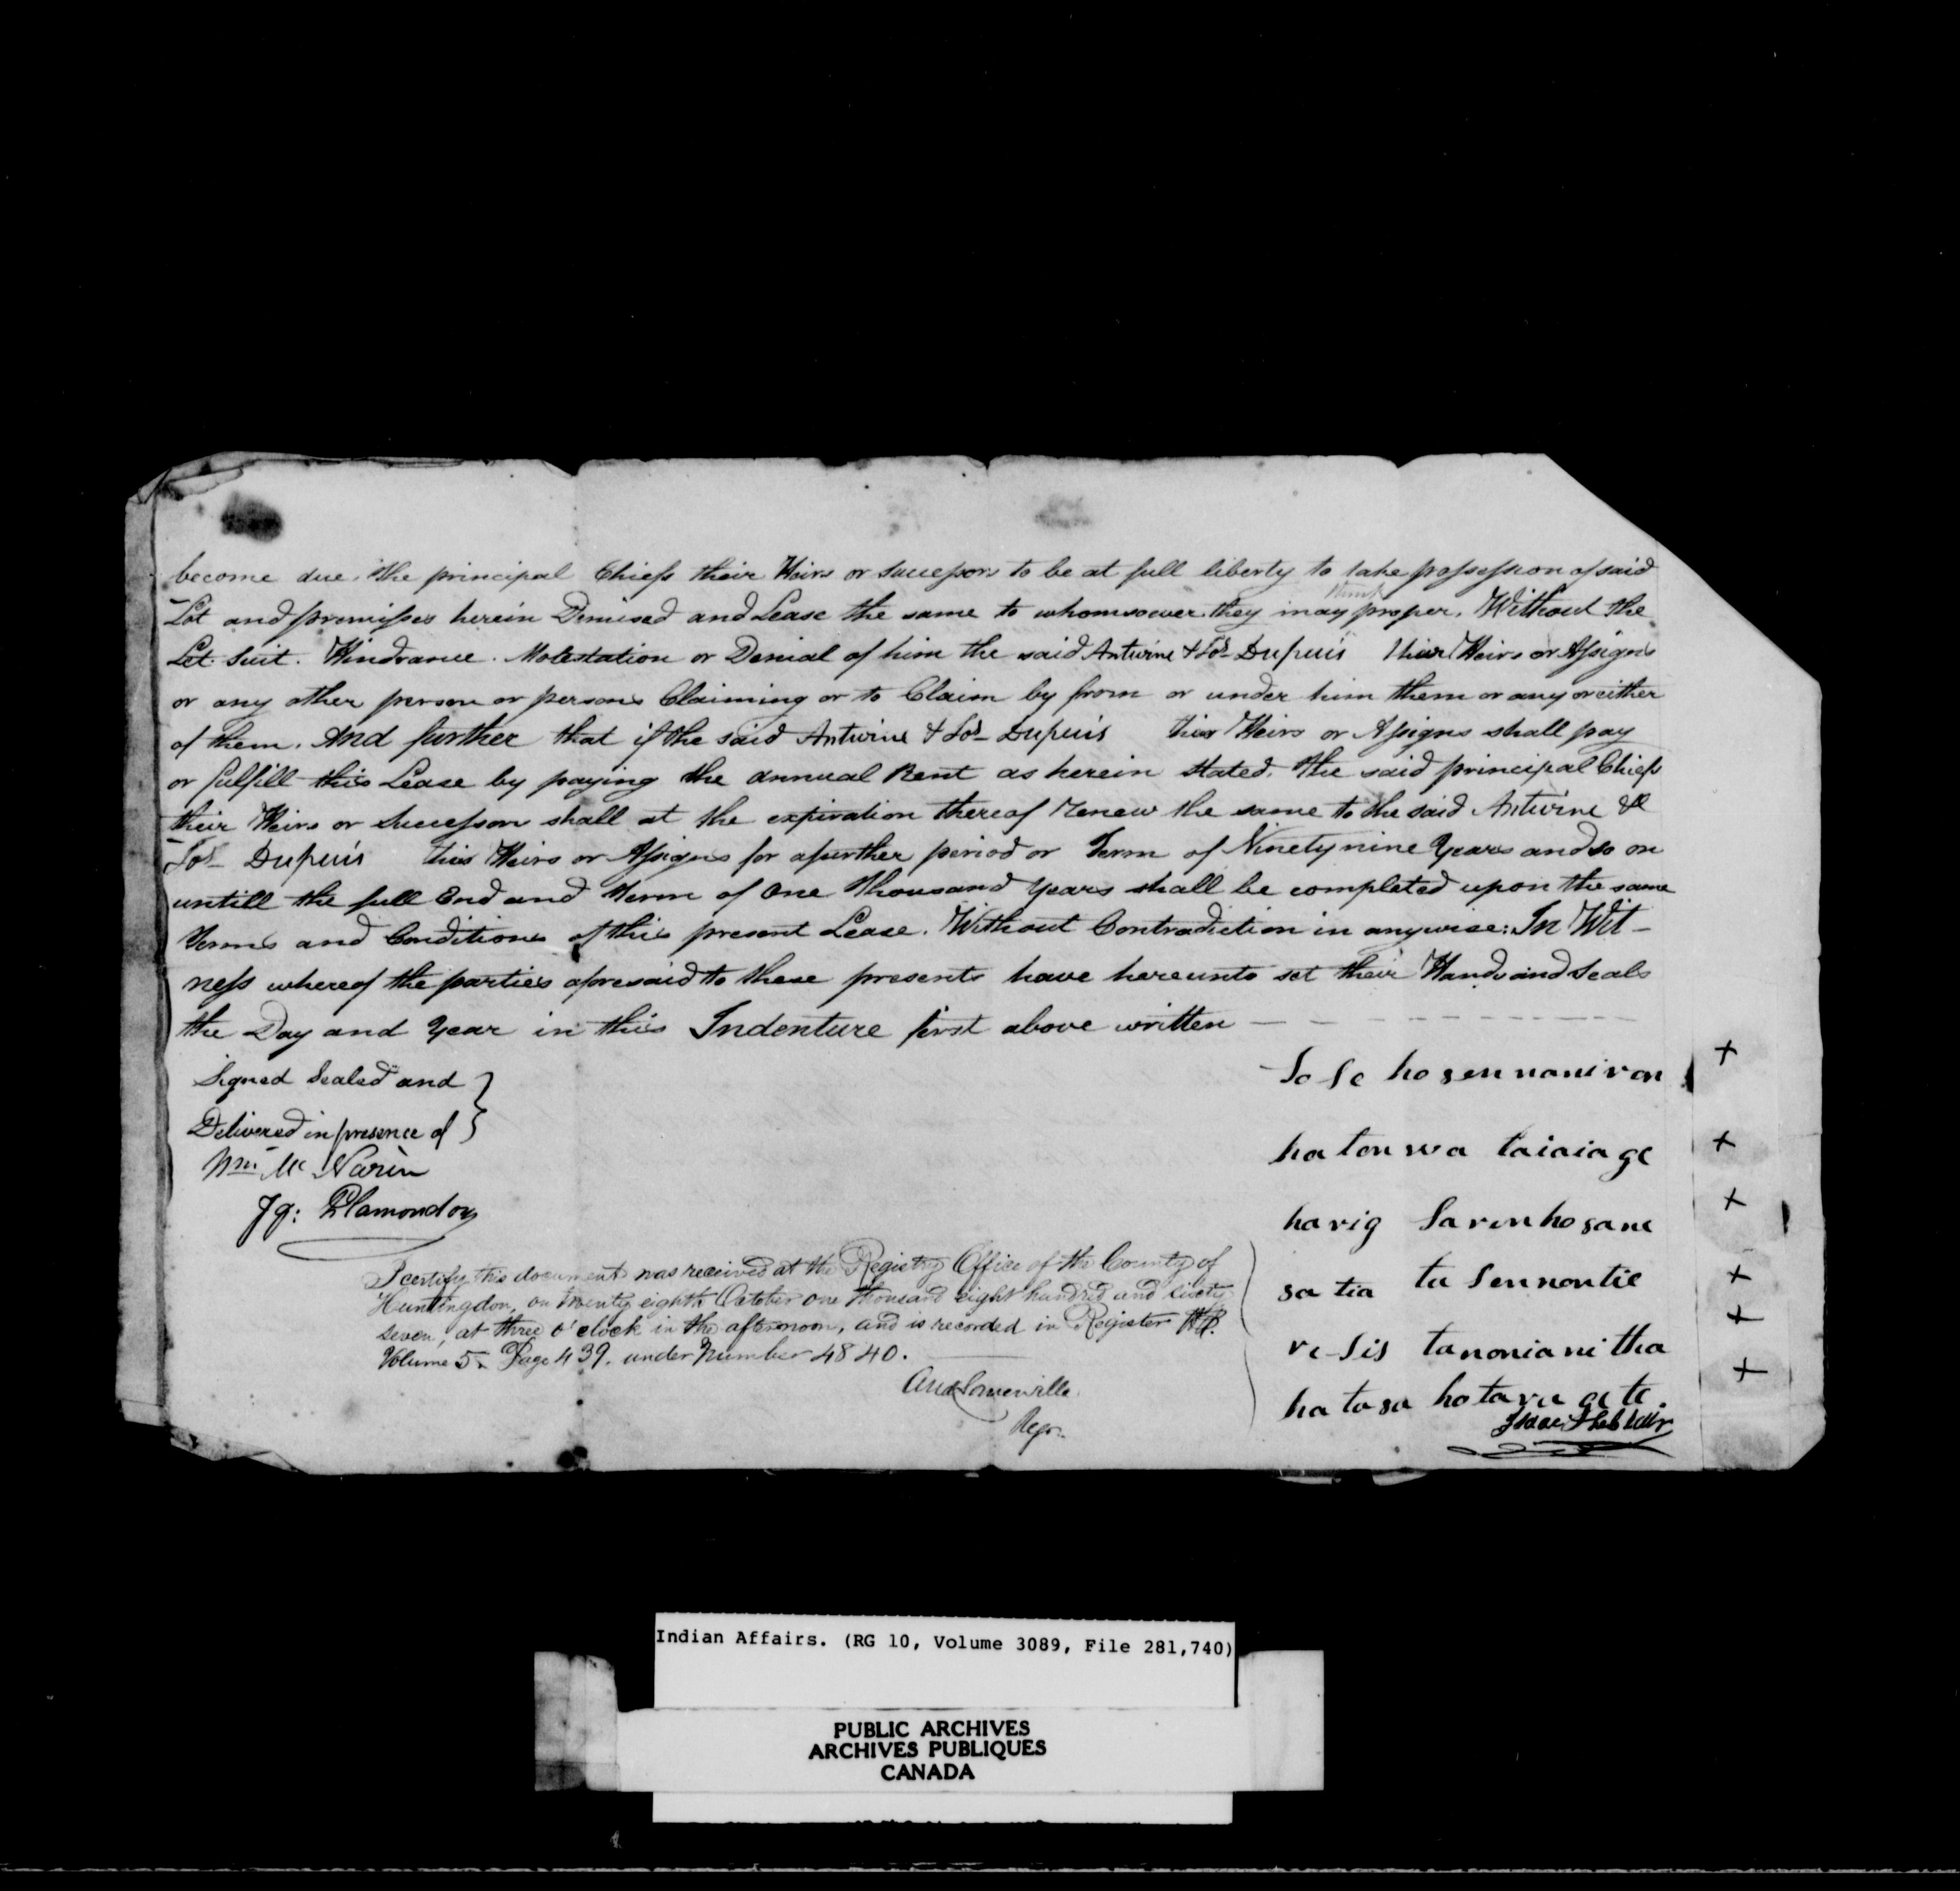 become due. The principal Chiefs their Heirs or Successors to be at full liberty to take possession of said
think
Lot and premisses herein Demised and Lease the same to whomsoever they may proper. Without the
Let. Suit. Hindrance. Molestation or Denial of him the said Antwine & Jos Dupuis their Heirs or Assigns
or any other person or persons Claiming or to Claim by from or under him them or any or either
of them. And further that if the said Antwine & Jos Dupuis their Heirs or Assigns shall pay
or fulfill this Lease by paying the annual Rent as herein stated. The said principal Chiefs
their Heirs or Successors shall at the expiration thereof renew the same to the said Antwine &
Jos Dupuis their Heirs or Assigns for a further period or Term of Ninety nine Years and so on
untill the full End and Term of One Thousand Years shall be completed upon the same
Terms and Conditions of this present Lease. Without Contradiction in anywise: In Wit-
ness whereof the parties aforesaid to these presents have hereunto set their Hands and Seals
the Day and Year in this Indenture first above written
Signed Sealed and
Delivered in presence of
Wm Mc Narin
Jg: Plamondon
So Se ho sen naniron +
ha ton wa taiaiage +
harig Sarenhosane +
sa tia ta Sennontie +
re-Sis tanonianitha +
ha tasa hotara ge te. +
I certify this document was received at the Registry Office of the County of
Huntingdon, on twenty eighth October one thousand eight hundred and sixty
seven, at three o'clock in the afternoon, and is recorded in Register B.
Volume 5. Page 439. under Number 4840.
And Somerville
Regr.
Indian Affairs. (RG 10, Volume 3089, File 281,740)
PUBLIC ARCHIVES
ARCHIVES PUBLIQUES
CANADA